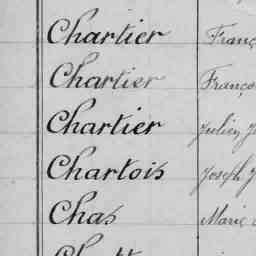 Chartier Franç
Chartier Franço
Chartier Julien J
Chartois Joseph J
Chas Marie